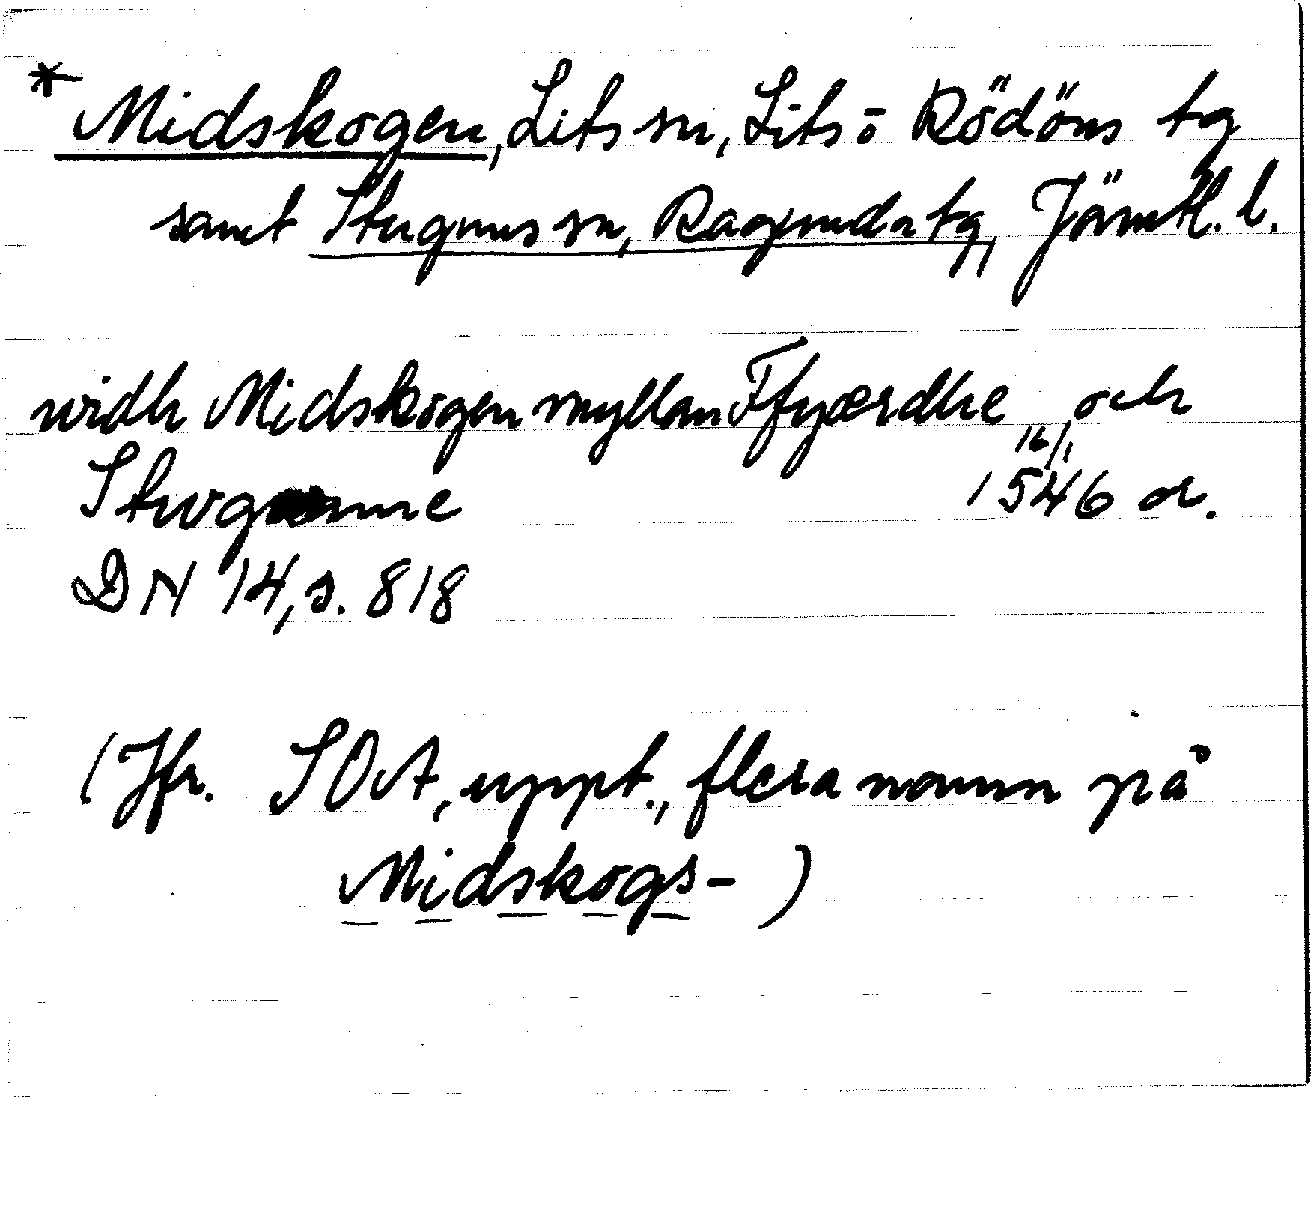 * Midskogen, Lits sn, Lits o Rödöns tg
samt Stuguns sn, Ragunda tg, Jämtl. l.
widh Midskogen myllan Ffyærdhe och
16/1
1546 or.
DN 14, s. 818
(Jfr. SOA, uppt., flera namn på
Midskogs- )